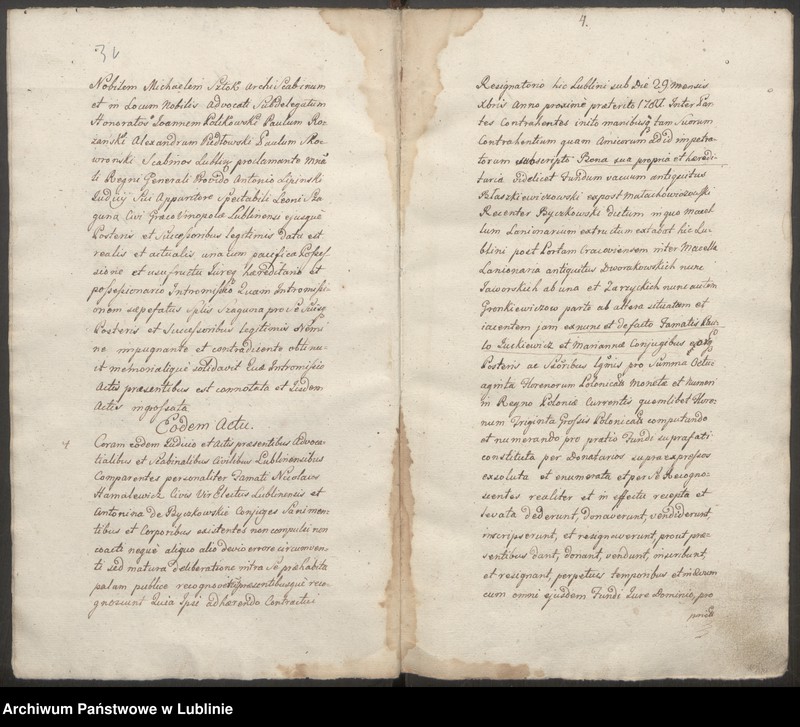 Nobilem Michaelem Sztok Archi Scabinum
et in Locum Nobilis Advocati Subdelegatum
Honoratos Joannem Kulikowski Paulum Roz-
zanski Alexandrum Piedtowski Paulum Sko-
wronski Scabinos proclamante
ti Regni Generali Provido Antonio Lipinski
Judicij Sui Apparitore Spectabili Leoni Sza
guna Civi Graco Lublinensi ejusque
Posteris et Successoribus legitimis data est
realis et actualis una cum pacifica Posses-
sione et usufructu Jureq hereditario et
possessionario Intromissio Quam Intromissi-
onem sæpefatus Szaguna pro Se Suisq
Posteris et Successoribus legitimis Nemi
ne impugnante et contradicente obtinu-
it memorialiquè solidavit Intromissio
Actis præsentibus est connotata et Eisdem
Actis ingossata
Eodem Actu.
4
Coram eodem Judicio et Actis præsentibus Advoca-
tialibus et Scabinalibus Civilibus Lublinensibus
Comparentes personaliter Famati Nicolaus
Hamalewicz Civis Vir Electus Lublinensis et
Antonina de Byczkowskie Conjuges Sani men-
tibus et Corporibus existentes non compulsi non
coacti nequè aliquo alio devio errore circumven-
ti sed matura deliberatione intra Sé præhabita
palam publice recognoverunt præsentibusquè reco-
gnoscunt Quia Ipsi adhærendo Contractui
4.
Resignatorio hic Lublini sub Die 29 Mensis
Xbris Anno proxime præterito 178 Inter Par
tes Contrahentes inito manibusq tam Suorum
Contrahentium quam Amicorum ad id impetra-
torum subscripto Bona sua propria et heredi-
taria videlicet Fundum vacuum antiquitus
Ptaszkiewiczowski ex post Matachowiczowski
Recenter Byczkowski dictum in quo Macel-
lum Lanionarum extructum extabat hic Lu-
blini post Portam Cracoviensem inter Macella
Lanionaria antiquitus Dworakowskich nunc
Jaworskich ab una et Zarzyckich nunc autem
Gronkiewiczow parte ab altera situatum et
iacentem jam ex nunc et de facto Famatis Pau-
lo Zuckiewicz et Mariannæ Conjugibus
Posteris ac pro Summa Octu-
aginta Florenorum Polonicali Moneta et Numeri
in Regno Poloniæ Currentis quemlibet Flore-
num Triginta Grossis Polonicali computando
et numerando pro pratio Fundi suprafati
constituta per Donatarios supraexpressos
exsoluta et enumerata et per Sé Recogno-
scentes realiter et in effectu recepta et
levata dederunt, donaverunt, vendiderunt
inscripserunt, et resignaverunt, prout præ-
sentibus dant, donant, vendunt, inscribunt,
et resignant, perpetuis temporibus et in ævum
cum omni ejusdem Fundi Jure Dominio, pro
Archiwum Państwowe w Lublinie